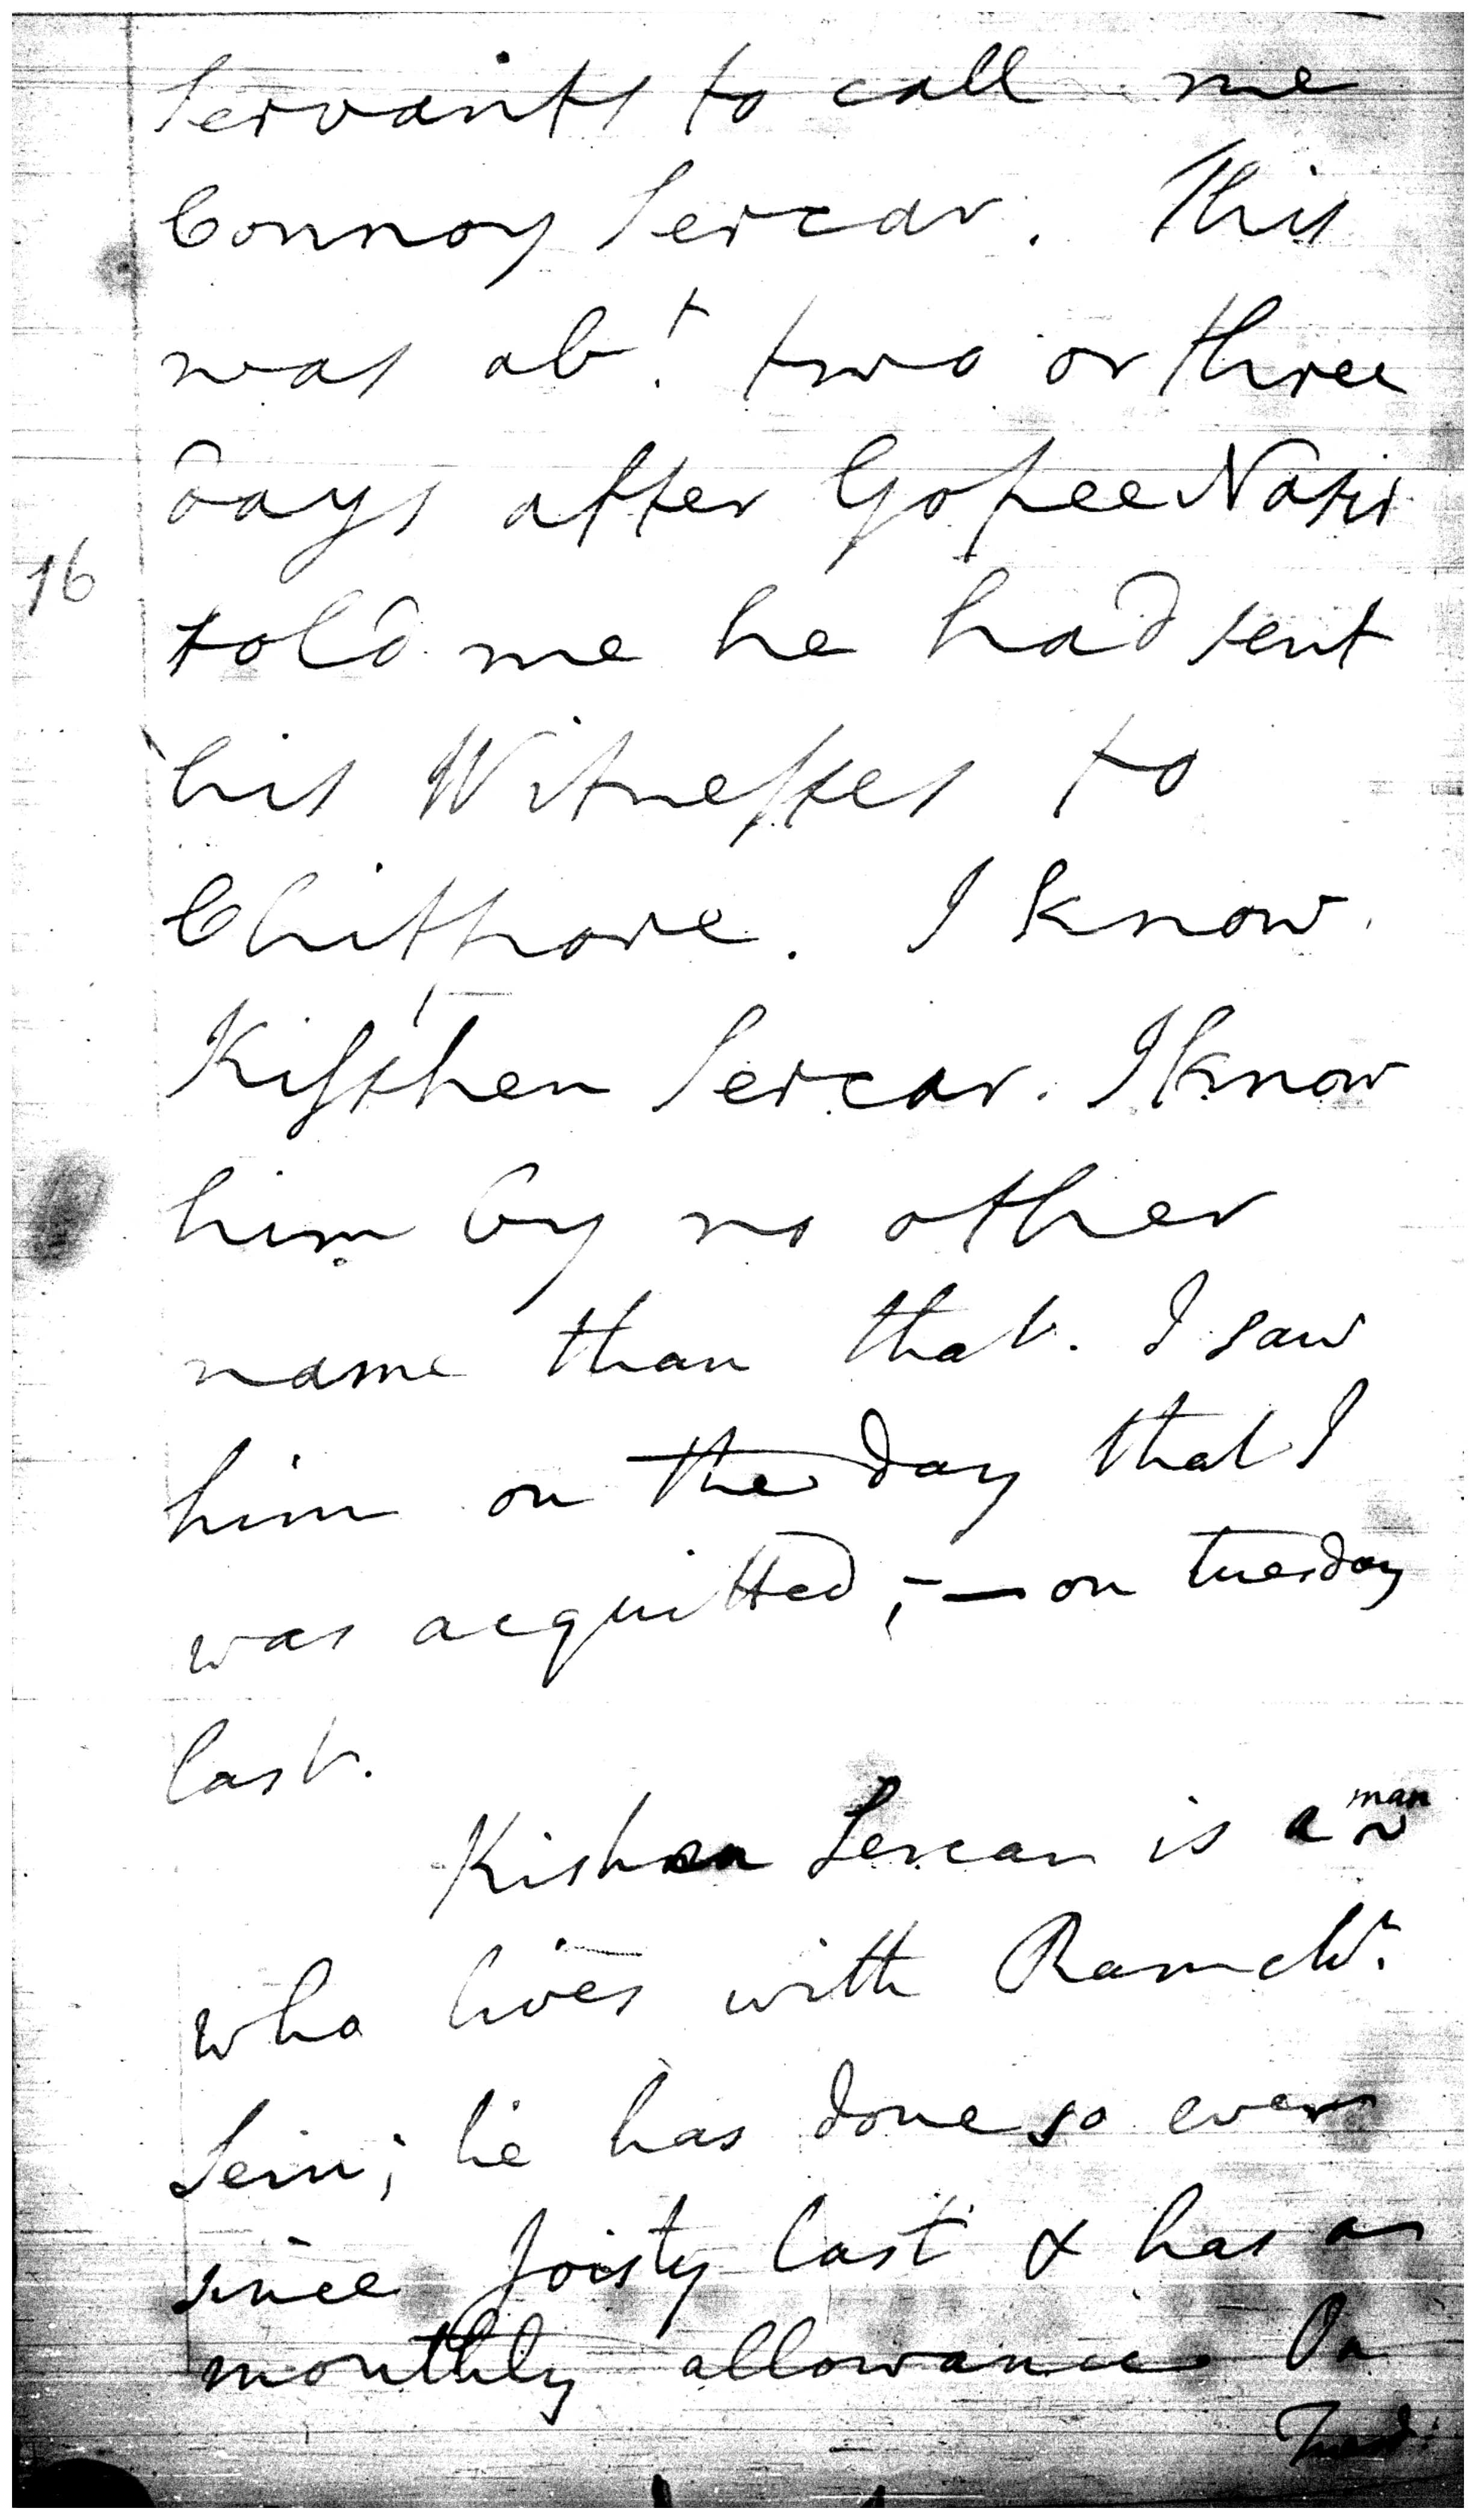 servants to call me
Connoy Sercar. This
was abt. two or three
days after Gopee Nasir
16
told me he had sent
his Witnesses to
Chitpore. I know
Kisshen Sercar. I know
him by no other
name than that. I saw
him on the day that I
was acquitted, — on tuesday
last.
Kishen Sercar is a man
who lives with Ramcht.
Sein; he has done so ever
since Joisty last & has a
monthly allowance On